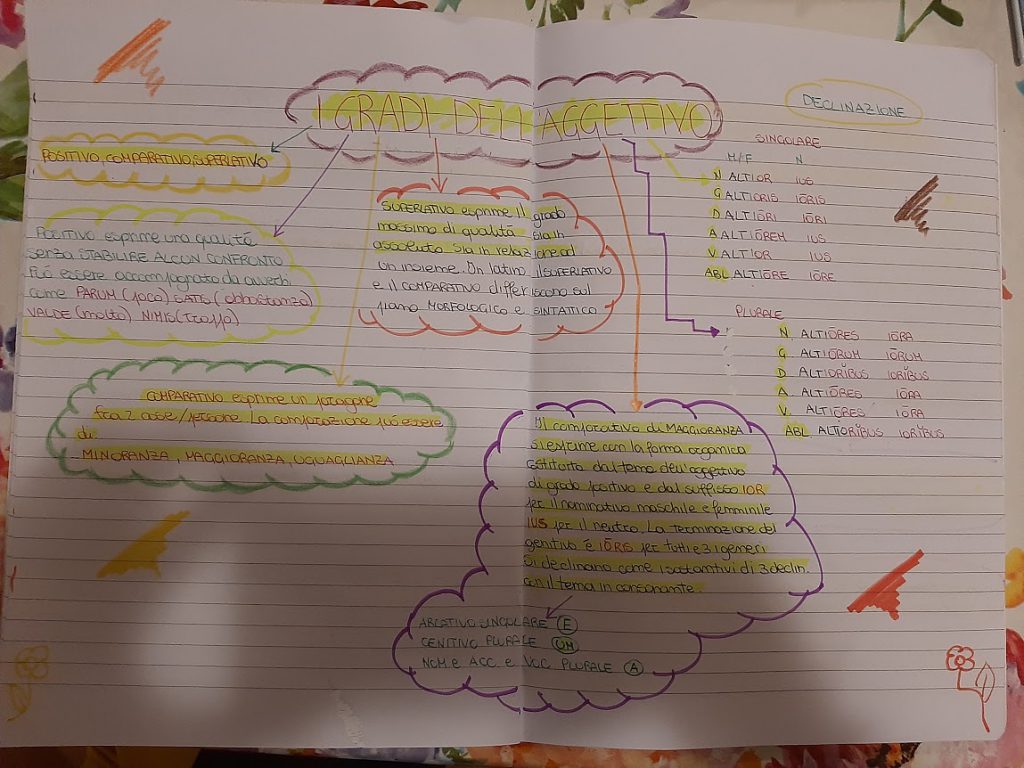 I GRADI DELL'AGGETTIVO
POSITIVO, COMPARATIVO, SUPERLATIVO
POSITIVO esprime una qualità
senza STABILIRE ALCUN CONFRONTO
Può essere accompagnato da avverbi
come PARUM (poco) SATIS (abbastanza)
VALDE (molto) NIMIS (troppo)
SUPERLATIVO esprime il grado
massimo di qualità sia in
assoluto sia in relazione ad
un insieme. In latino il SUPERLATIVO
e il COMPARATIVO differiscono sul
piano MORFOLOGICO e SINTATTICO
COMPARATIVO esprime un paragone
fra 2 cose/persone. La comparazione può essere
di
MINORANZA, MAGGIORANZA, UGUAGLIANZA
Il comparativo di MAGGIORANZA
si esprime con la forma organica
costituita dal tema dell'aggettivo
di grado positivo e dal suffisso IOR
per il nominativo maschile e femminile
IUS per il neutro. La terminazione del
genitivo è IŌRIS per tutti e 3 i generi
Si declinano come i sostantivi di 3 declin.
con il tema in consonante.
ABLATIVO SINGOLARE E
GENITIVO PLURALE UM
NOM. e ACC. e VOC PLURALE A
DECLINAZIONE
SINGOLARE
M/F N
N ALTIOR IUS
G ALTIORIS IŌRIS
D ALTIŌRI IŌRI
A ALTIŌREM IUS
V ALTIOR IUS
ABL ALTIŌRE IŌRE
PLURALE
N. ALTIŌRES IŌRA
G. ALTIŌRUM IŌRUM
D. ALTIORĬBUS IORĬBUS
A. ALTIŌRES IŌRA
V. ALTIŌRES IŌRA
ABL. ALTIORĬBUS IORĬBUS